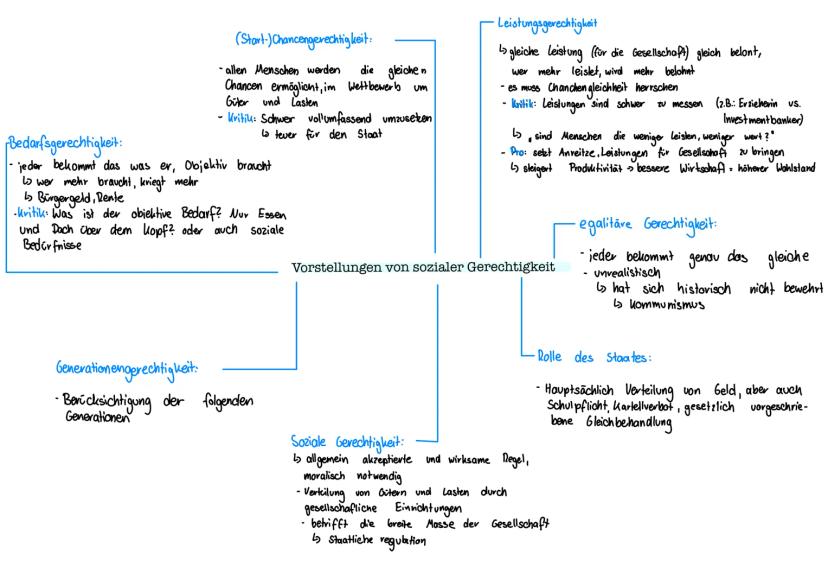 (Start-)Chancengerechtigkeit:
- allen Menschen werden die gleichen
Chancen ermöglicht, im Wettbewerb um
Güter und Lasten
- Kritik: Schwer vollumfassend umzusetzen
↳ teuer für den Staat
Leistungsgerechtigkeit
↳ gleiche Leistung (für die Gesellschaft) gleich belont,
wer mehr leistet, wird mehr belohnt
- es muss Chanchengleichheit herrschen
- Kritik: Leistungen sind schwer zu messen (z.B.: Erzieherin vs.
Investmentbanker)
↳ "sind Menschen die weniger leisten, weniger wert?"
- Pro: setzt Anreitze, Leistungen für Gesellschaft zu bringen
↳ steigert Produktivität → bessere Wirtschaft = höherer Wohlstand
Bedarfsgerechtigkeit:
- jeder bekommt das was er, Objektiv braucht
↳ wer mehr braucht, kriegt mehr
↳ Bürgergeld, Rente
- Kritik: Was ist der objektive Bedarf? Nur Essen
und Dach über dem Kopf? oder auch soziale
Bedürfnisse
egalitäre Gerechtigkeit:
- jeder bekommt genau das gleiche
- unrealistisch
↳ hat sich historisch nicht bewehrt
↳ Kommunismus
Vorstellungen von sozialer Gerechtigkeit
Generationengerechtigkeit:
- Berücksichtigung der folgenden
Generationen
Rolle des Staates:
- Hauptsächlich Verteilung von Geld, aber auch
Schulpflicht, Kartellverbot, gesetzlich vorgeschrie-
bene Gleichbehandlung
Soziale Gerechtigkeit:
↳ allgemein akzeptierte und wirksame Regel,
moralisch notwendig
- Verteilung von Gütern und Lasten durch
gesellschafliche Einrichtungen
- betrifft die breite Masse der Gesellschaft
↳ Staatliche regulation